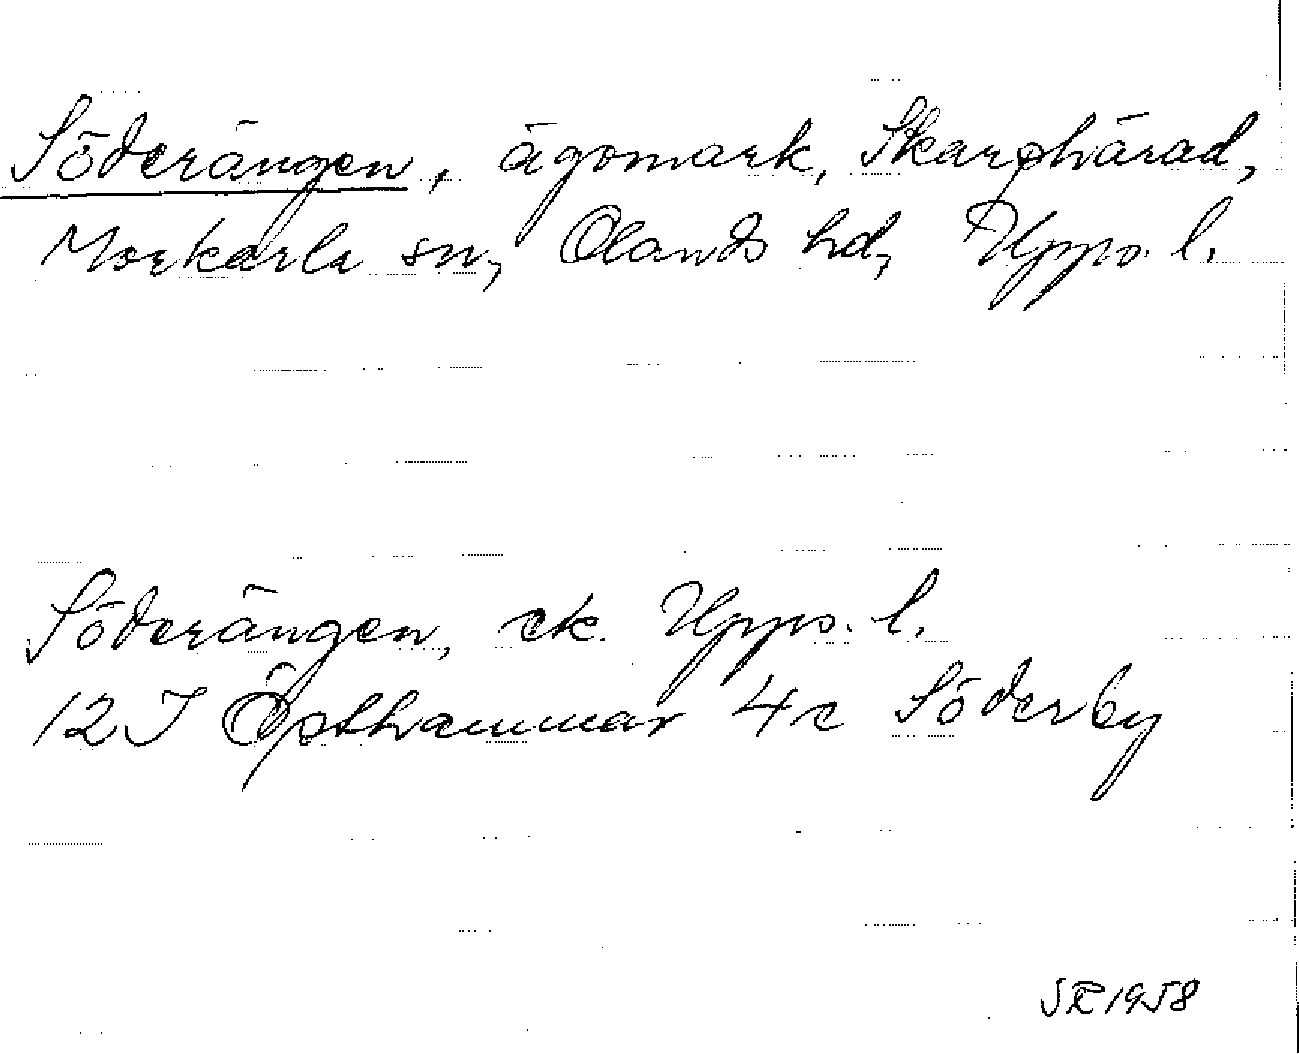 Söderängen, ägomark, Skarphärad,
Morkarla sn, Olands hd, Upps. l.
Söderängen, ek. Upps. l.
12 I Östhammar 4c Söderby
SE 1958